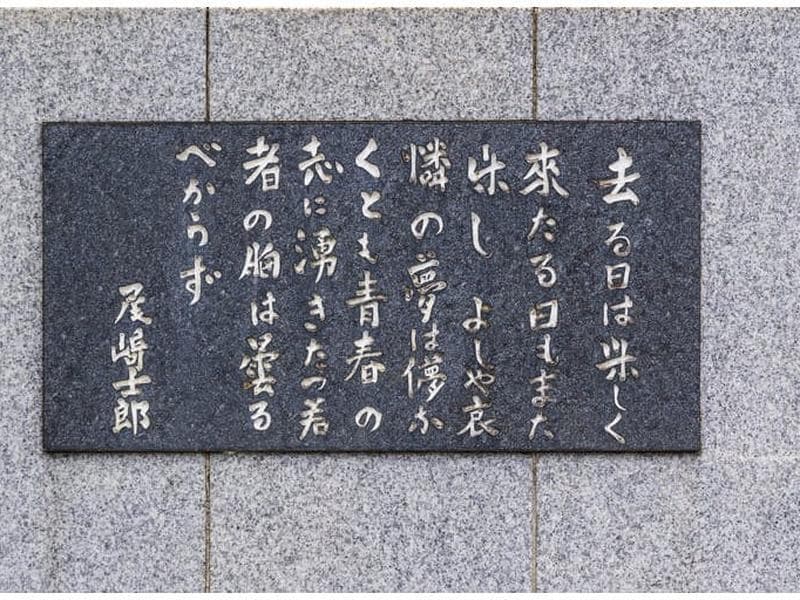 去る日は楽しく
來たる日もまた
楽し　よしや哀
憐の夢は儚な
くとも青春の
志に湧きたつ若
者の胸は曇る
べからず
尾﨑士郎